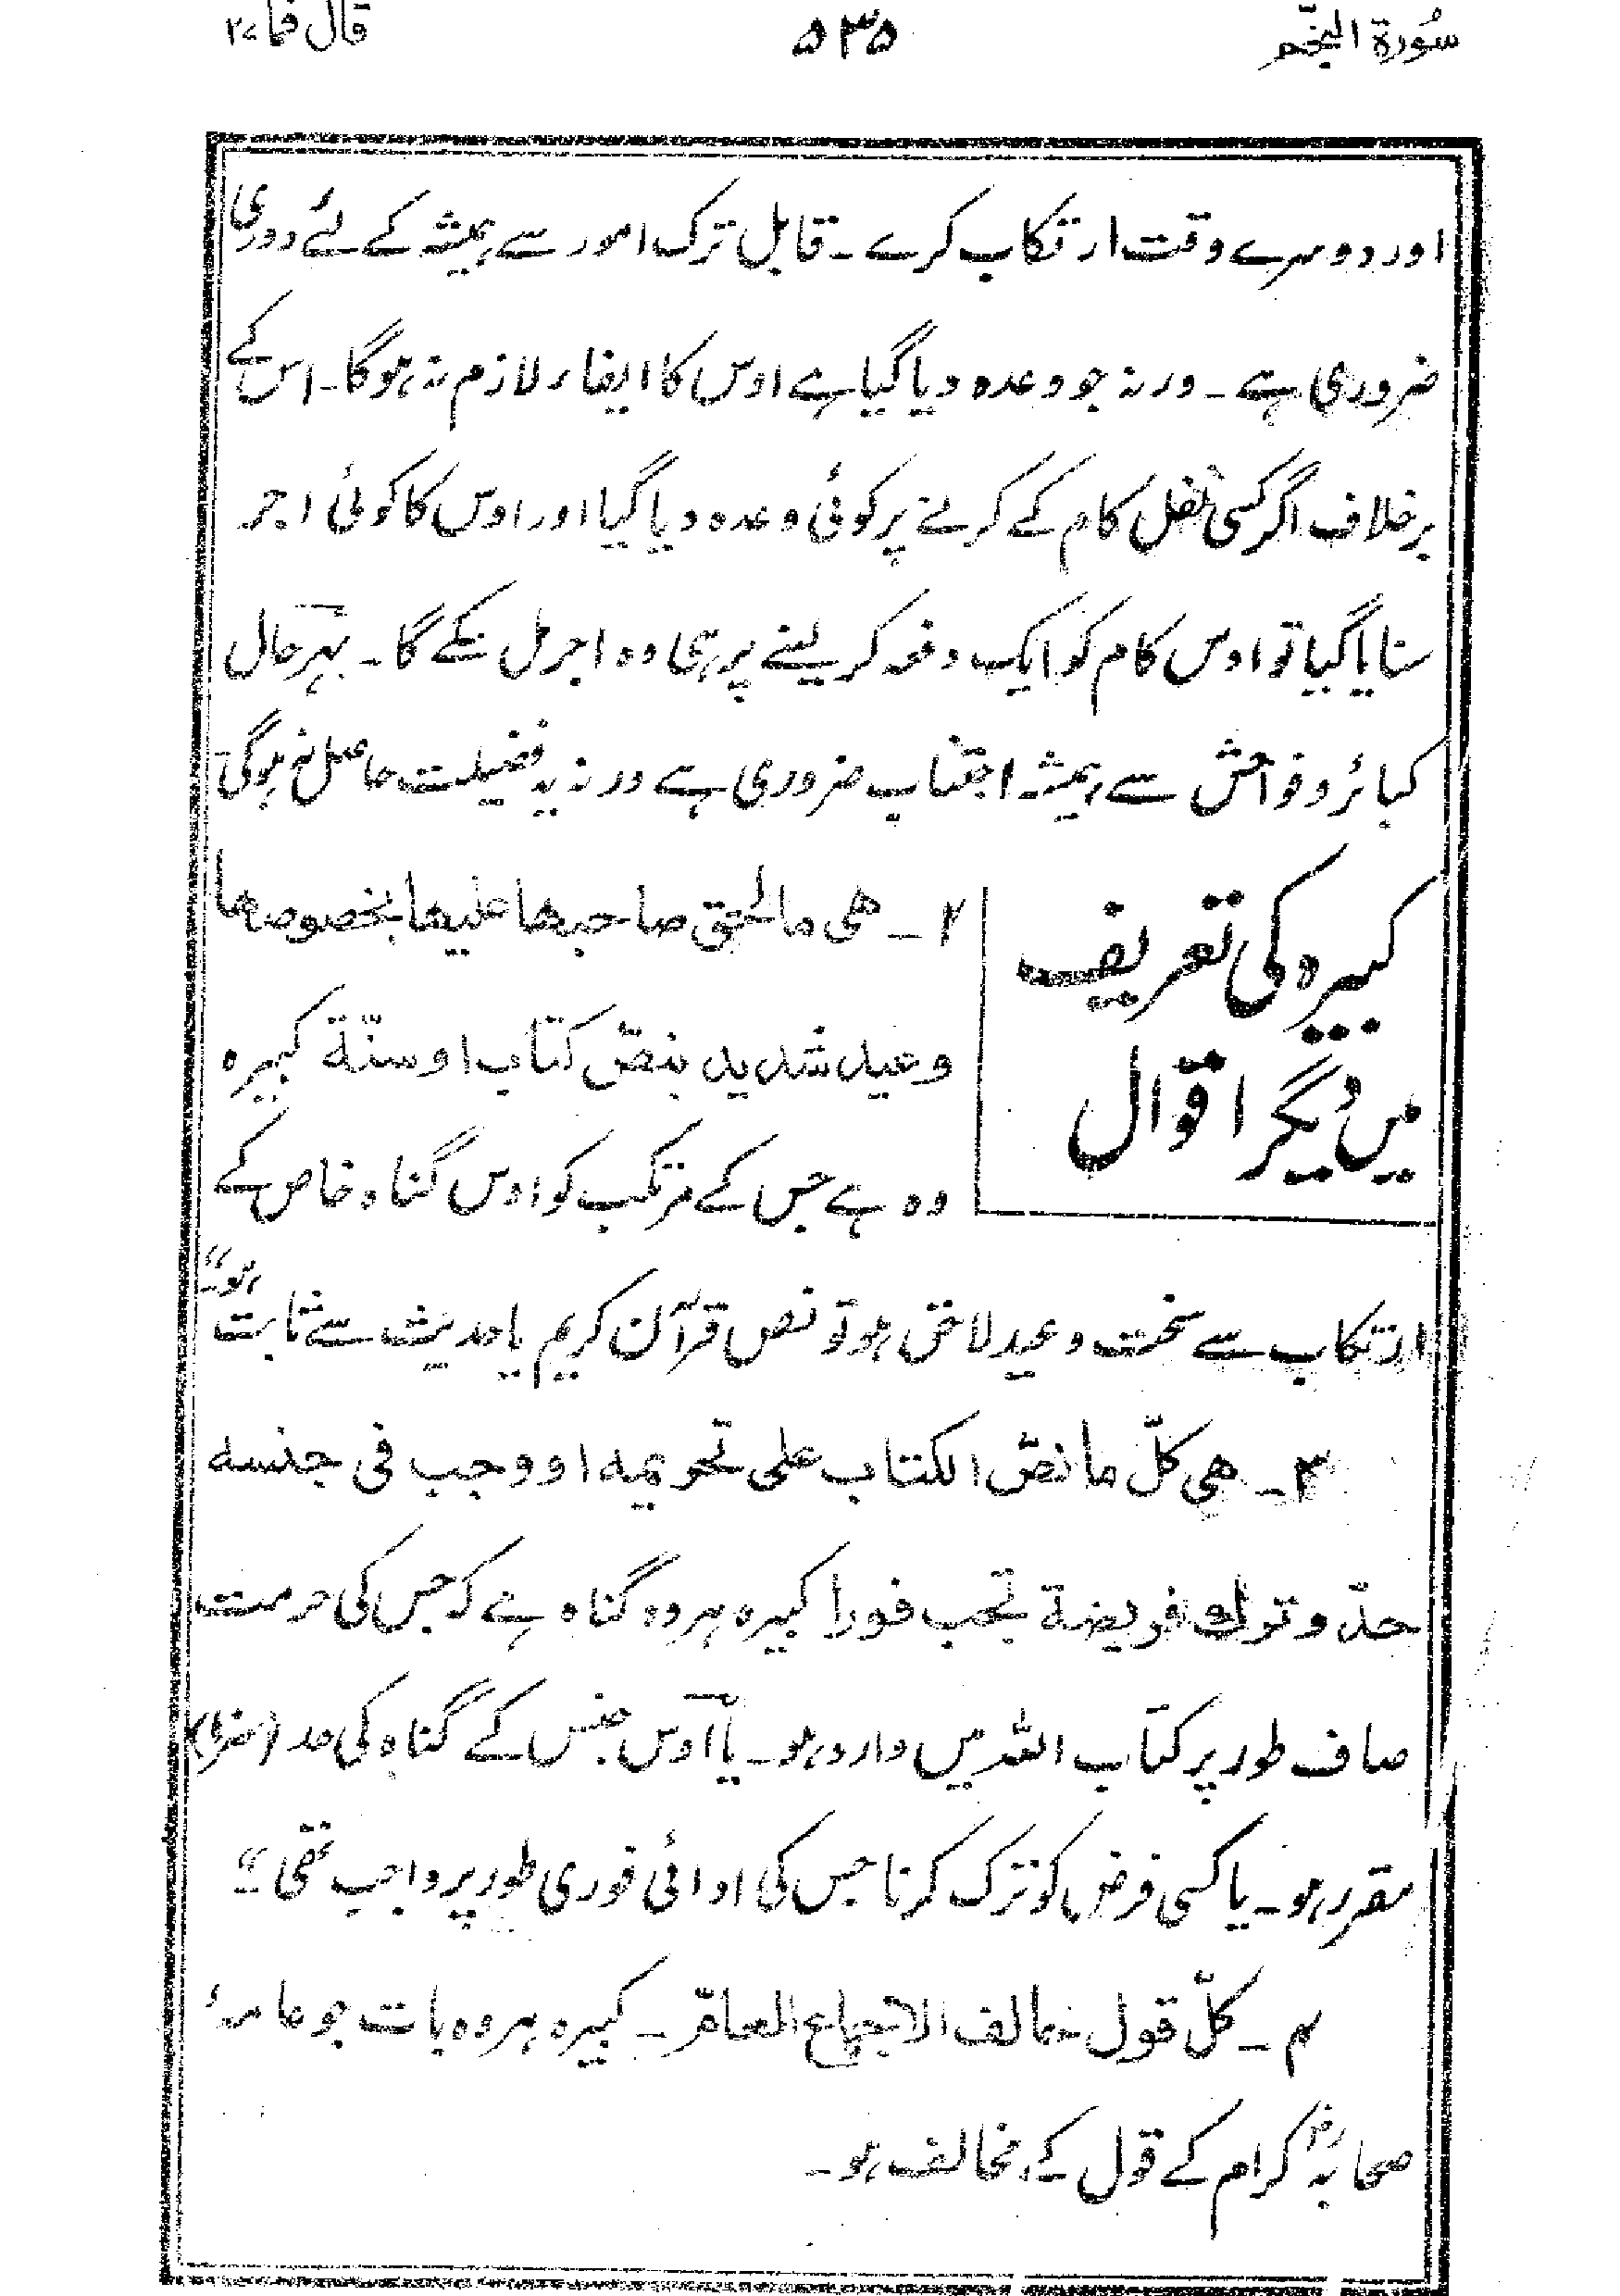 سُورة النجم
۵۳۵
قال فما ۲۷
اور دوسرے وقت ارتکاب کرے۔ قابل ترک امور سے ہمیشہ کے لئے دوری
ضروری ہے۔ ورنہ جو وعدہ دیا گیا ہے اوس کا ایفاء لازم نہ ہوگا۔ اس کے
برخلاف اگر کسی نفل کام کے کرنے پر کوئی وعدہ دیا گیا اور اوس کا کوئی اجر
سنایا گیا تو اوس کام کو ایک دفعہ کر لینے پر ہی وہ اجر مل سکے گا۔ بہرحال
کبائر و فواحش سے ہمیشہ اجتناب ضروری ہے ورنہ یہ فضیلت حاصل نہ ہوگی۔
کبیرہ کی تعریف
میں دیگر اقوال
۲۔ ھی ما لحق صاحبھا علیھا بخصوصھا
وعید شدید بنصّ کتاب او سنّة کبیرہ
وہ ہے جس کے مرتکب کو اوس گناہ خاص کے
ارتکاب سے سخت وعید لاحق ہو تو نص قرآن کریم یا حدیث سے ثابت ہو۔“
۳۔ ھی کلّ ما نصّ الکتاب علی تحریمہ او وجب فی جنسہ
حدّ و ترک فریضة تجب فورا کبیرہ ہر وہ گناہ ہے کہ جس کی حرمت
صاف طور پر کتاب اللہ میں وارد ہو۔ یا اوس جنس کے گناہ کی حد (سزا)
مقرر ہو۔ یا کسی فرض کو ترک کرنا جس کی ادائی فوری طور پر واجب تھی“
۴۔ کلّ قول خالف الاجماع العامّ۔ کبیرہ ہر وہ بات جو عامۂ
صحابہؓ کرام کے قول کے مخالف ہو۔